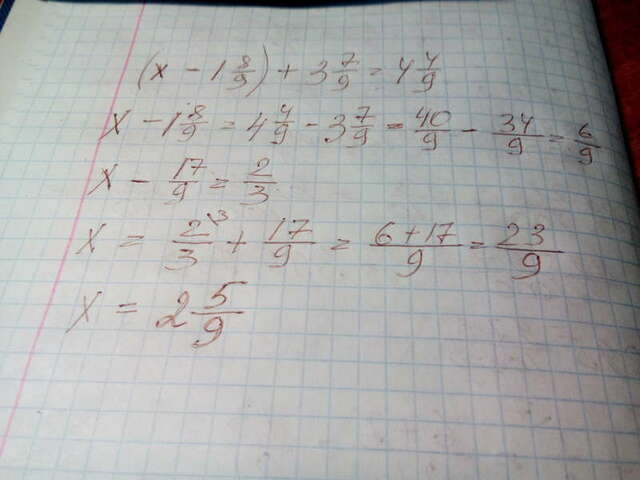 (x - 1 8/9) + 3 7/9 = 4 4/9
x - 1 8/9 = 4 4/9 - 3 7/9 = 40/9 - 34/9 = 6/9
x - 17/9 = 2/3
x = 2/3 \3 + 17/9 = 6+17/9 = 23/9
x = 2 5/9